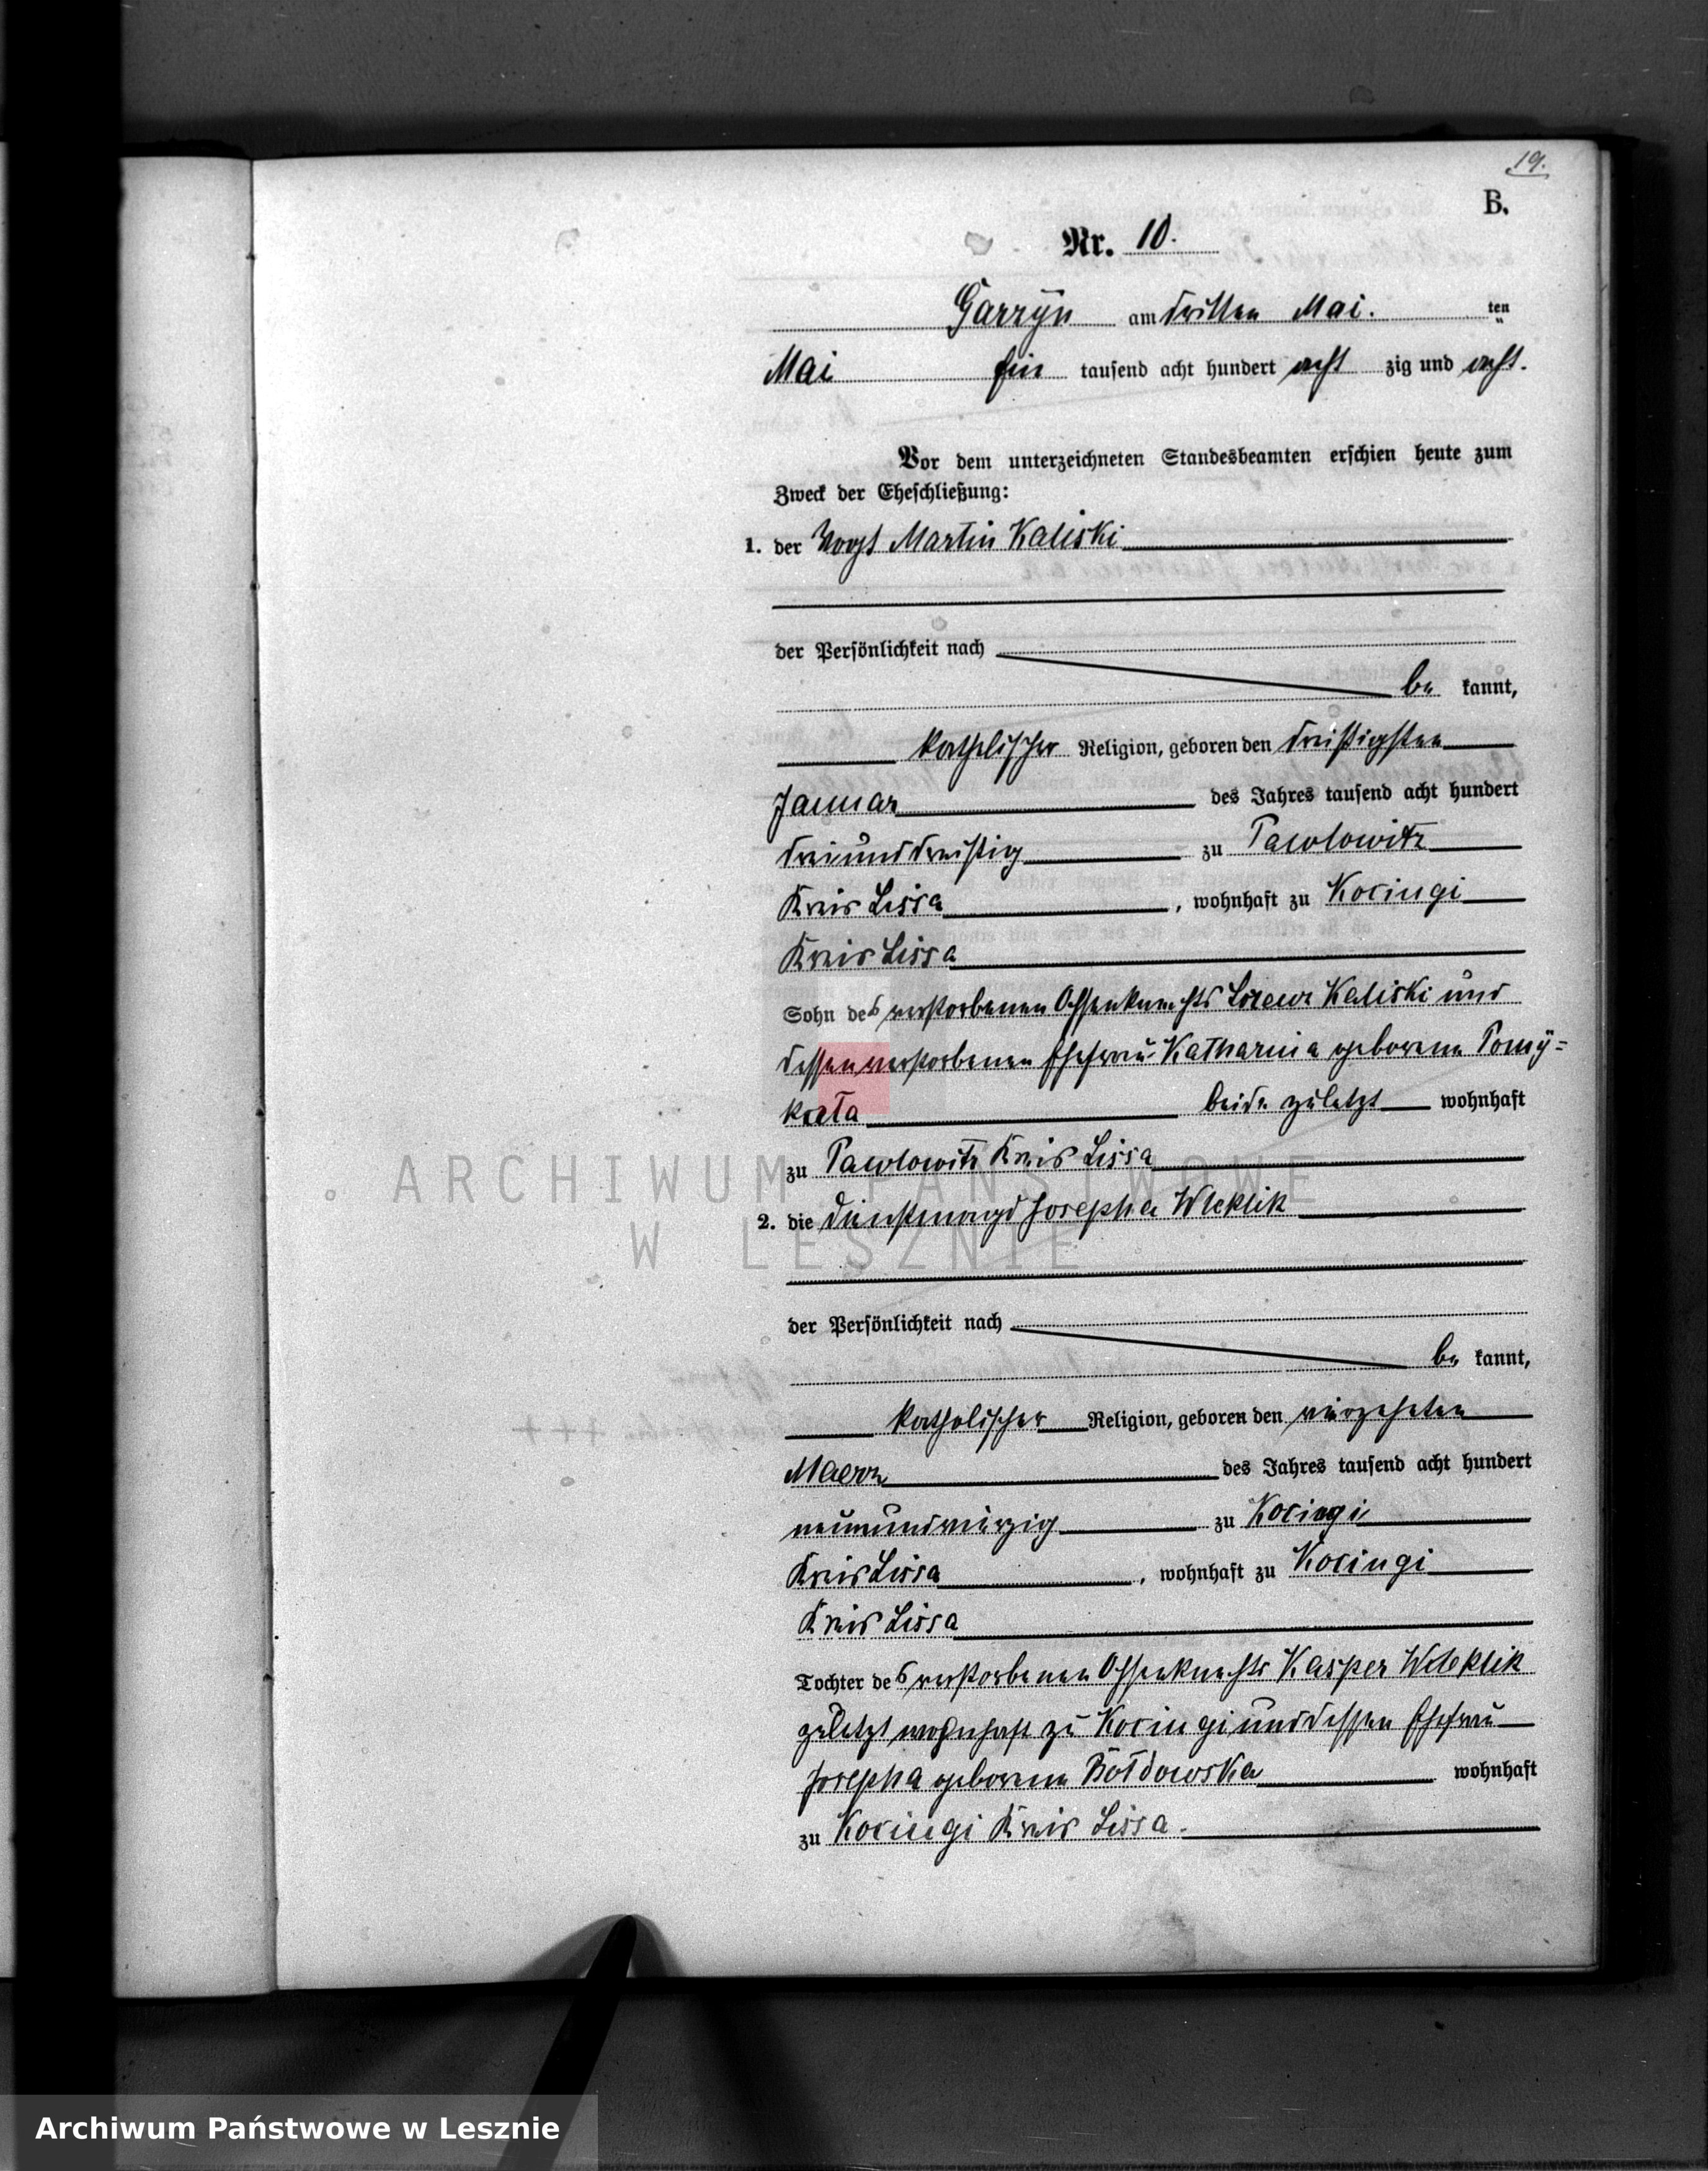 19.
B.
Nr. 10.
Garzyn am dritten Mai. ten
Mai Ein tausend acht hundert acht zig und acht.
Vor dem unterzeichneten Standesbeamten erschien heute zum
Zweck der Eheschließung:
1. der Vogt Martin Kaliski
der Persönlichkeit nach
be kannt,
katholischer Religion, geboren den dreißigsten
Januar des Jahres tausend acht hundert
dreiunddreißig zu Pawlowitz
Kreis Lissa, wohnhaft zu Kociugi
Kreis Lissa
Sohn des verstorbenen Ochsenknechts Kaliski und
dessen verstorbenen Ehefrau Katharina geborene Pomÿ=
beide zuletzt wohnhaft
zu Pawlowitz Kreis Lissa
2. die Dienstmagd Josepha Wleklik
der Persönlichkeit nach
be kannt,
katholischer Religion, geboren den vierzehnten
Maerz des Jahres tausend acht hundert
neunundvierzig zu Kociugi
Kreis Lissa, wohnhaft zu Kociugi
Kreis Lissa
Tochter des verstorbenen Ochsenknechts Kasper Wleklik
zuletzt wohnhaft zu Kociugi und dessen Ehefrau
Josepha geborene wohnhaft
zu Kociugi Kreis Lissa.
ARCHIWUM PAŃSTWOWE
W LESZNIE
Archiwum Państwowe w Lesznie